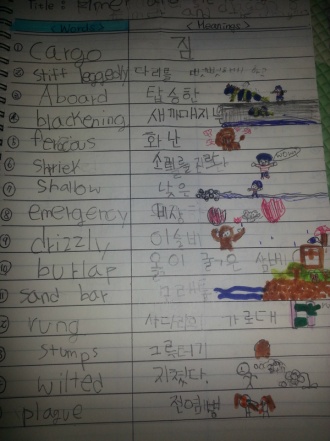 Title: Elmer and
<Words> <Meanings>
① Cargo 짐
② stiff leggedly 다리를
③ Aboard 탑승한
④ blackening 새까매지
⑤ ferocious 화난
⑥ Shriek 소리를 지르다
⑦ Shallow 낮은
⑧ emergency
⑨ drizzly 이슬비
⑩ burlap 올이
⑪ sand bar
⑫ rung 사다리 가로대
stumps 그루터기
wilted 지쳤다.
plague 전염병